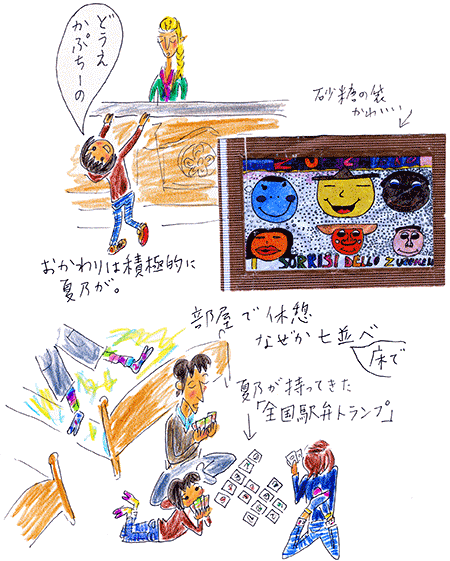 どうえ
かぷちーの
砂糖の袋
かわいい
SORRISI DELLO ZUCCHERO
おかわりは積極的に
夏乃が。
部屋で休憩
なぜか七並べ
床で
夏乃が持ってきた
「全国駅弁トランプ」